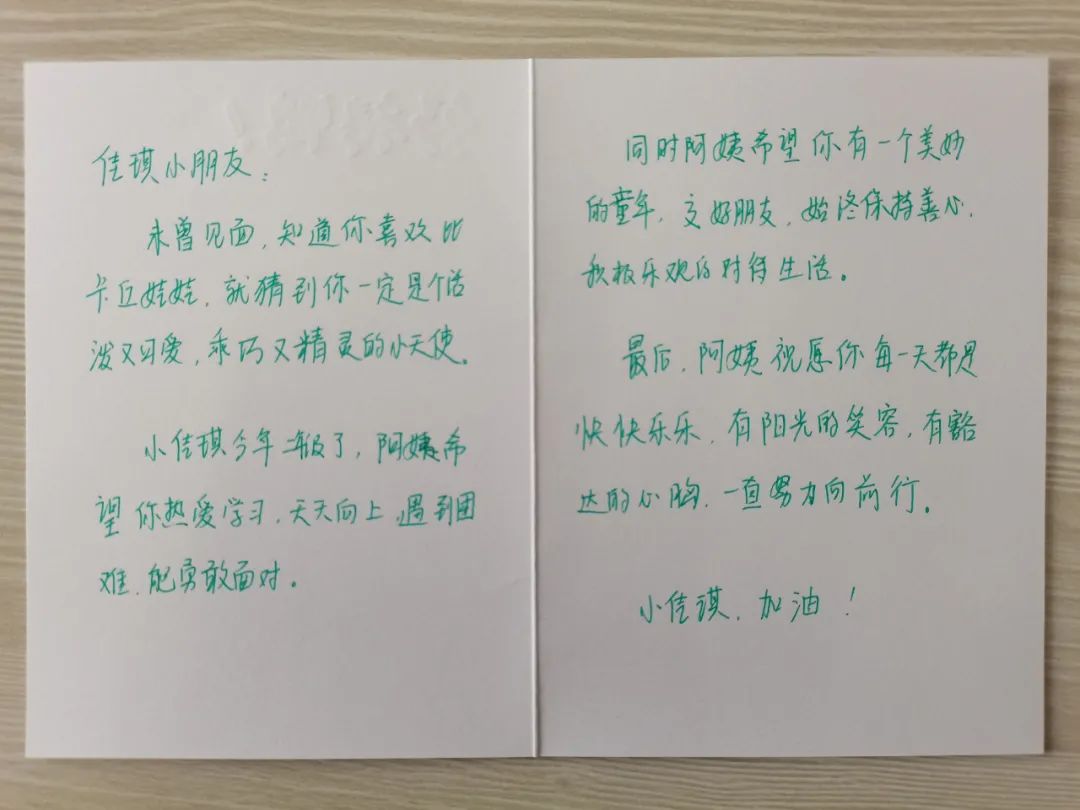 佳琪小朋友：
未曾见面，知道你喜欢比
卡丘娃娃，就猜到你一定是个活
泼又可爱，乖巧又精灵的小天使。
小佳琪今年二年级了，阿姨希
望你热爱学习，天天向上，遇到困
难，能勇敢面对。
同时阿姨希望你有一个美妙
的童年，交好朋友，始终保持善心，
积极乐观的对待生活。
最后，阿姨祝愿你每一天都是
快快乐乐，有阳光的笑容，有豁
达的心胸，一直努力向前行。
小佳琪，加油！